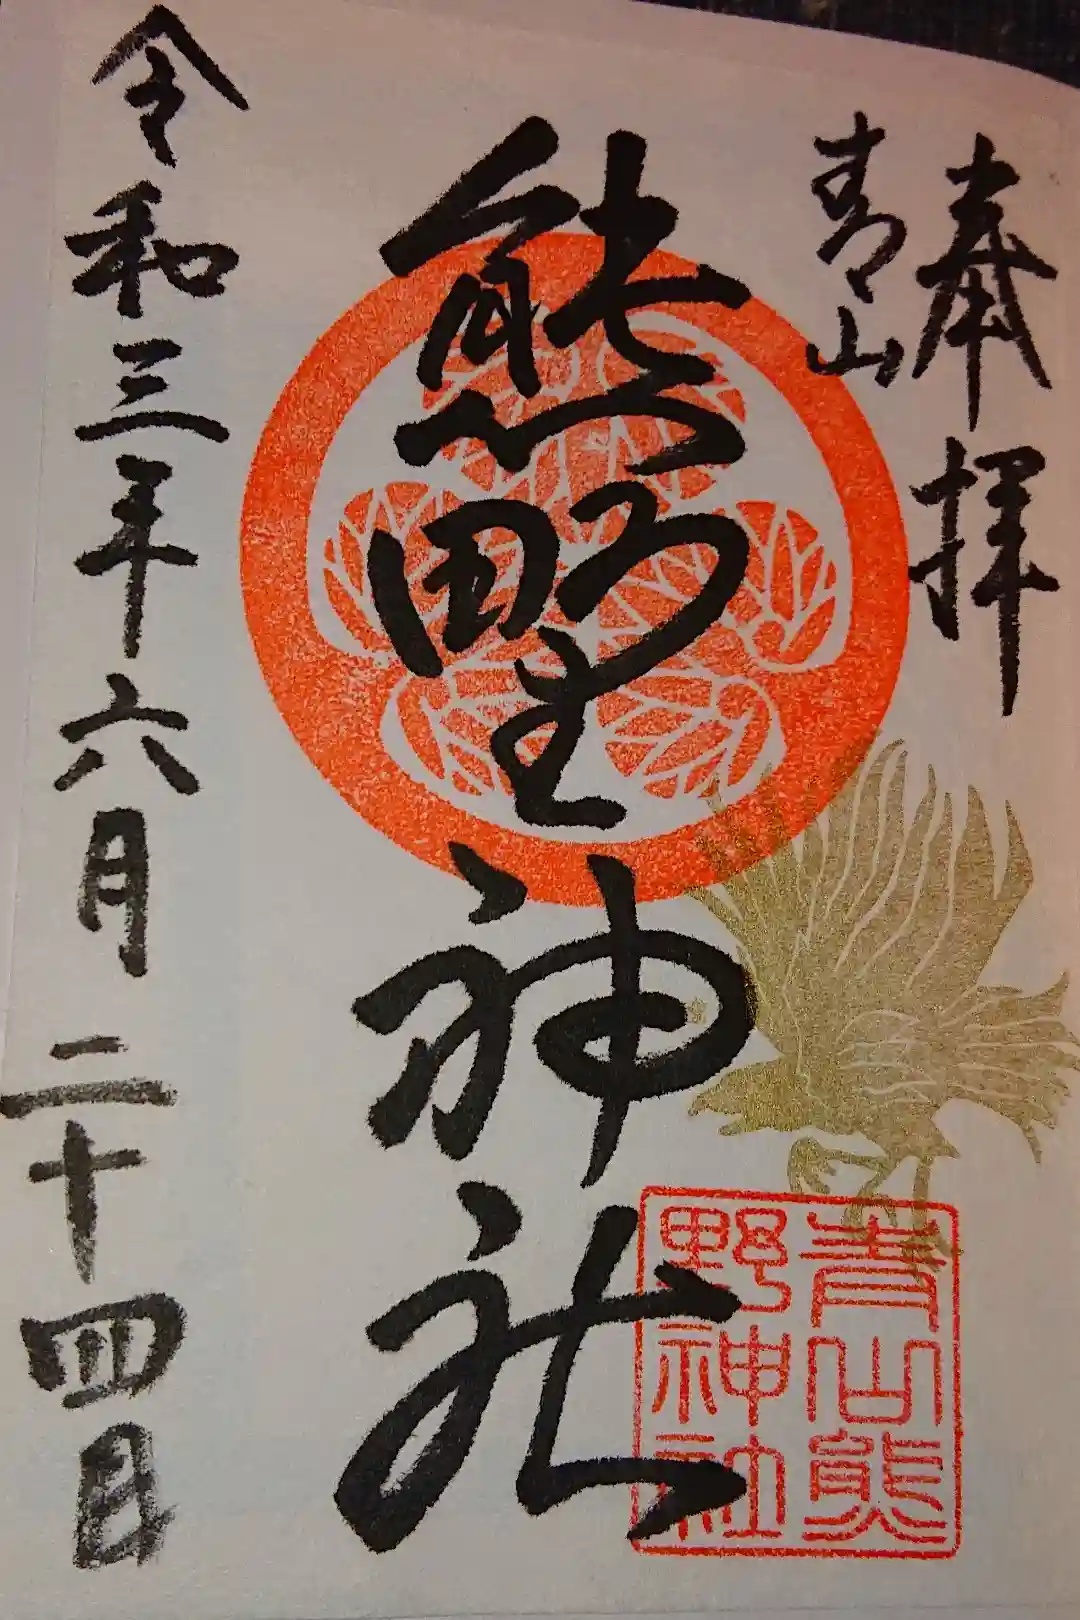 奉拝
青山
熊野神社
青山熊
野神社
令和三年六月二十四日